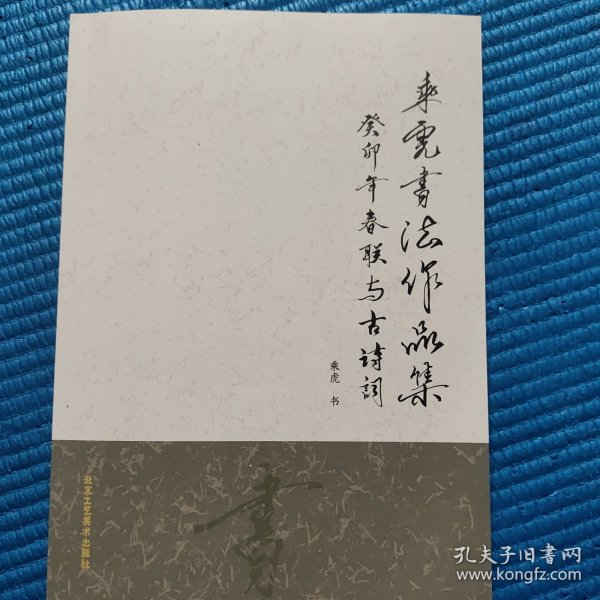 乘虎书法作品集
癸卯年春联与古诗词
乘虎 书
書
北京工艺美术出版社
孔夫子旧书网
www.kongfz.com